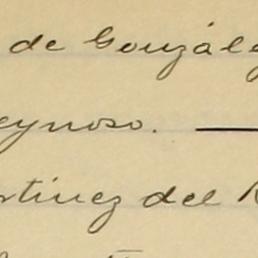 de Gonzále
eynoso. —
rtínez del R